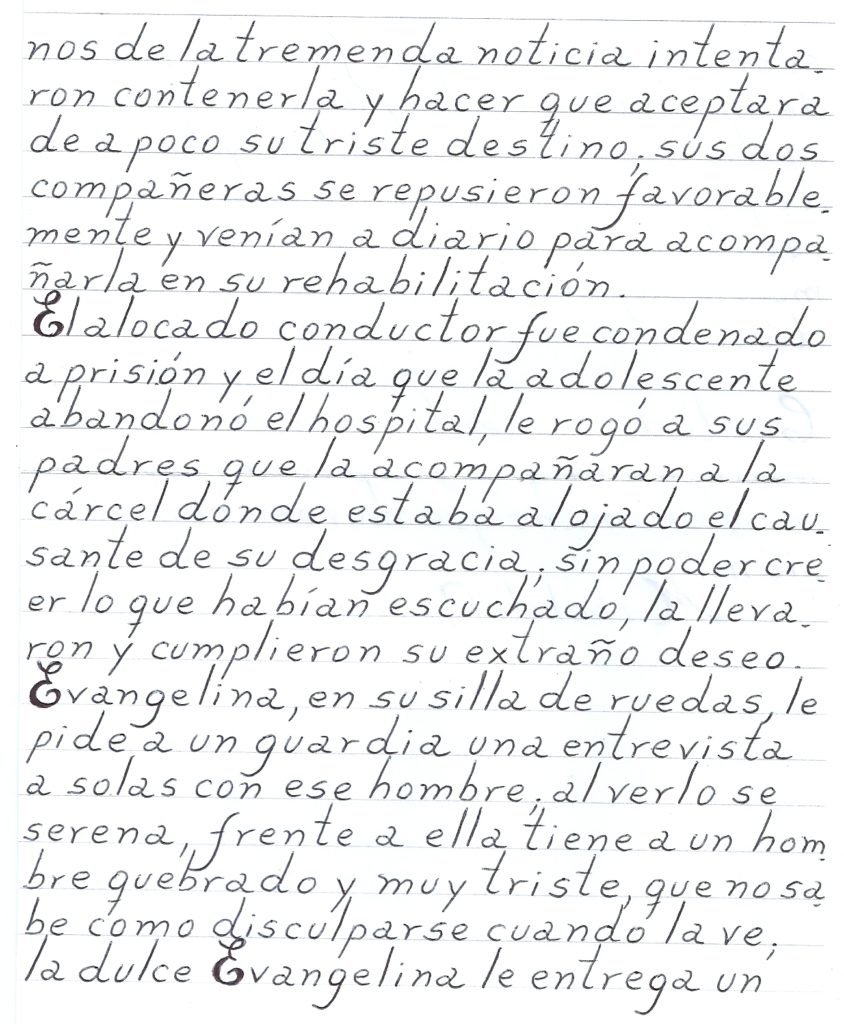 nos de la tremenda noticia intenta-
ron contenerla y hacer que aceptara
de a poco su triste destino; sus dos
compañeras se repusieron favorable-
mente y venían a diario para acompa-
ñarla en su rehabilitación.
El alocado conductor fue condenado
a prisión y el día que la adolescente
abandonó el hospital, le rogó a sus
padres que la acompañaran a la
cárcel dónde estaba alojado el cau-
sante de su desgracia; sin poder cre-
er lo que habían escuchado, la lleva-
ron y cumplieron su extraño deseo.
Evangelina, en su silla de ruedas, le
pide a un guardia una entrevista
a solas con ese hombre; al verlo se
serena, frente a ella tiene a un hom-
bre quebrado y muy triste, que no sa-
be cómo disculparse cuando la ve;
la dulce Evangelina le entrega un